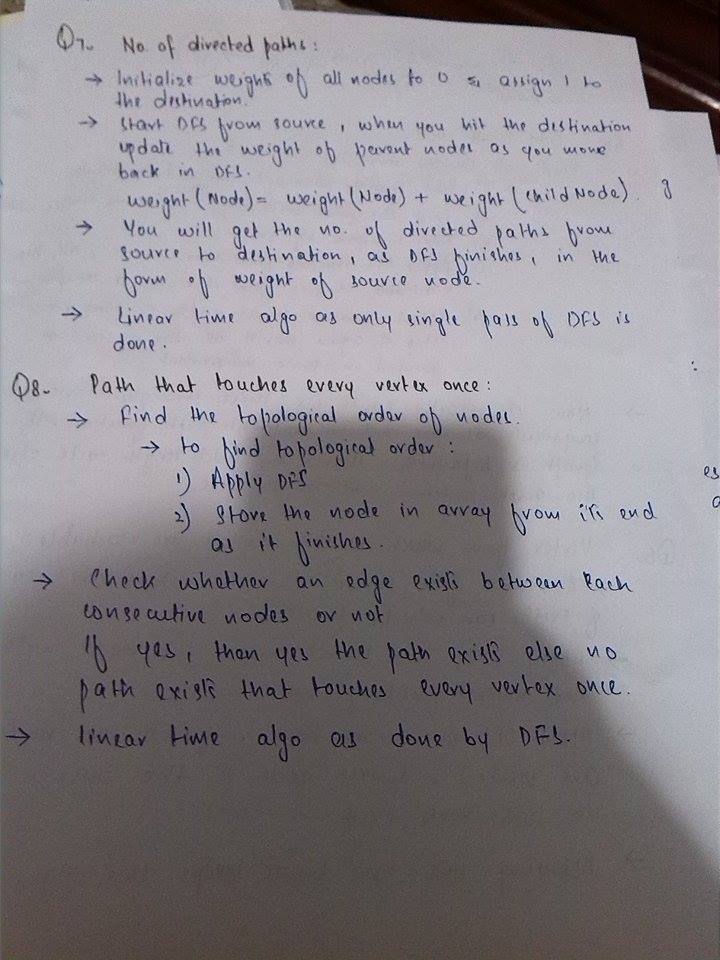 Q7. No. of directed paths:
→ Initialize weights of all nodes to 0 & assign 1 to
the destination.
→ Start DFS from source, when you hit the destination
update the weight of parent nodes as you move
back in DFS.
weight (Node) = weight (Node) + weight (Child Node).
→ You will get the no. of directed paths from
source to destination, as DFS finishes, in the
form of weight of source node.
→ Linear time algo as only single pass of DFS is
done.
Q8. Path that touches every vertex once:
→ Find the topological order of nodes.
→ to find topological order:
1) Apply DFS
2) Store the node in array from its end
as it finishes.
→ Check whether an edge exists between each
consecutive nodes or not
If yes, then yes the path exists else no
path exists that touches every vertex once.
→ linear time algo as done by DFS.